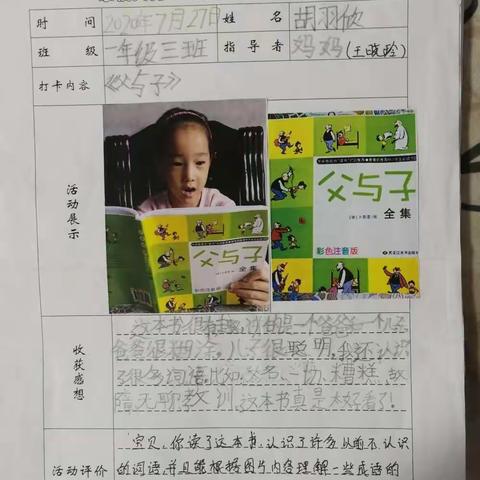 时 间 2020年7月27日 姓 名 胡羽欣
班 级 一年级三班 指导者 妈妈(王晓玲)
打卡内容 《父与子》
活动展示
父与子
全集
父与子
全集
彩色注音版
收获感想
这本书很有趣,讲的是一个爸爸和一个儿子
爸爸很糊涂,儿子很聪明,我还认识
了很多词语,比如 糟糕、故
障 无聊 教训,这本书真是太好看了!
活动评价
宝贝,你读了这本书,认识了许多以前不认识
的词语,并且能根据图片内容理解一些成语的